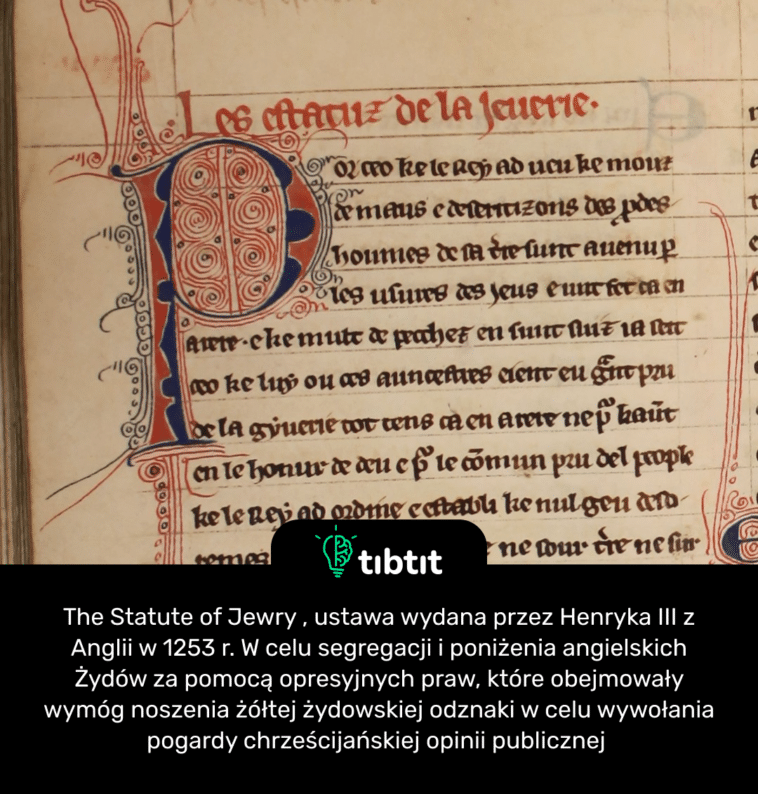 Les estatuz de la Jeuerie.
Por ceo ke le Rey ad ueu ke mouz
de maus e desentizons des pdes
houmes de sa tre sunt auenu p
les usures des Jeus e unt fet ca en
arere. e ke mutz de pecchez en sunt suz ia seit
ceo ke luy ou ces auncestres eient eu gnt pru
de la gyuerie tot tens ca en arere ne p kaut
en le honur de deu e p le comun pru del people
ke le Rey ad ordine e establi ke nul geu deso
remes ne sour tre ne sur
tıbtıt
The Statute of Jewry , ustawa wydana przez Henryka III z
Anglii w 1253 r. W celu segregacji i poniżenia angielskich
Żydów za pomocą opresyjnych praw, które obejmowały
wymóg noszenia żółtej żydowskiej odznaki w celu wywołania
pogardy chrześcijańskiej opinii publicznej